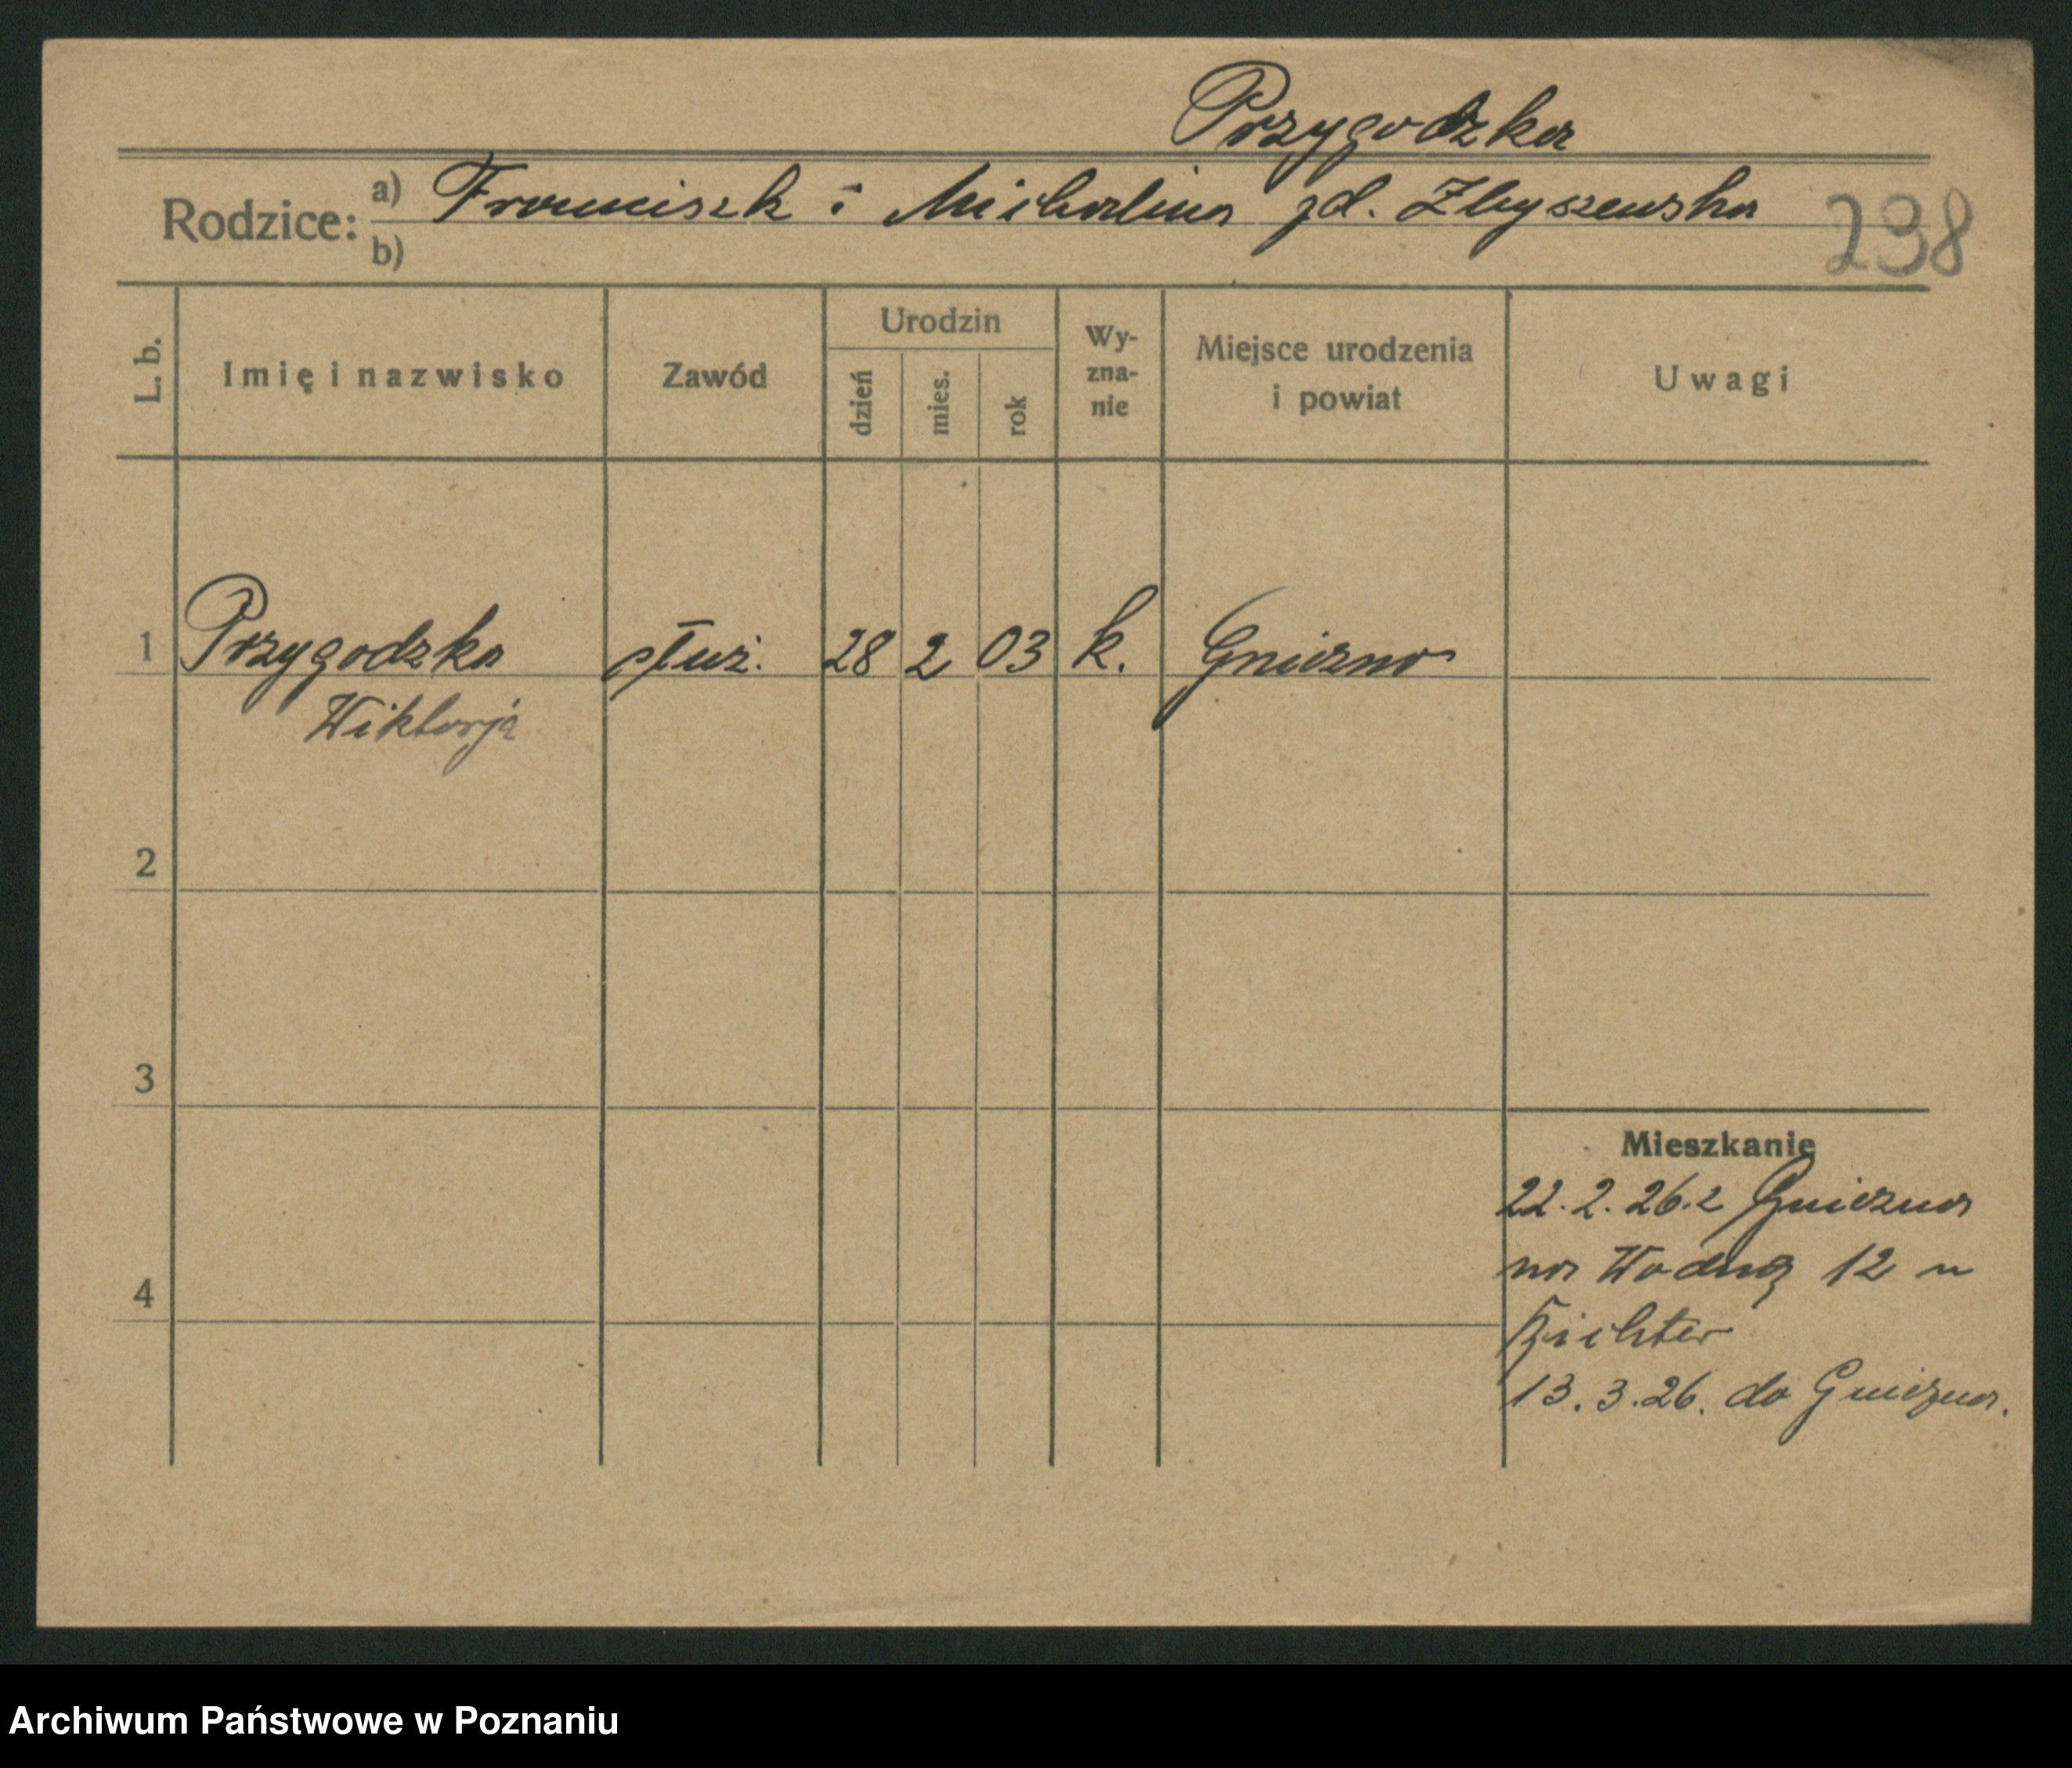 Przygodzka
Rodzice: a) Franciszk i Michalina zd. Zbyszewska
b)
298
L. b.
Imię i nazwisko
Zawód
Urodzin
dzień
mies.
rok
Wy-
zna-
nie
Miejsce urodzenia
i powiat
Uwagi
1 Przygodzka służ. 28 2 03 k. Gniezno
Wiktorja
2
3
Mieszkanie
22. 2. 26. z Gniezna
na Wodną 12 u
4
Richter
13. 3. 26. do Gniezna.
Archiwum Państwowe w Poznaniu